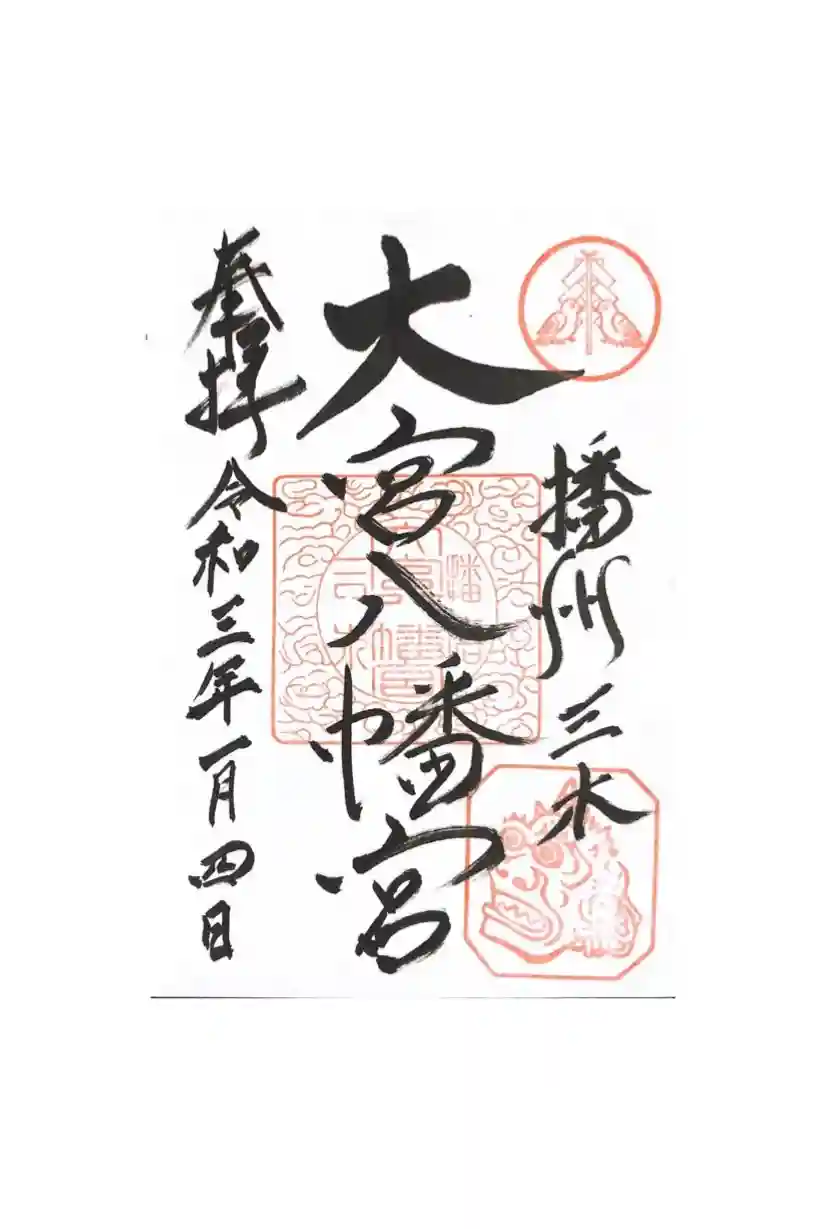 播州三木
大宮八幡宮
奉拝 令和三年一月四日